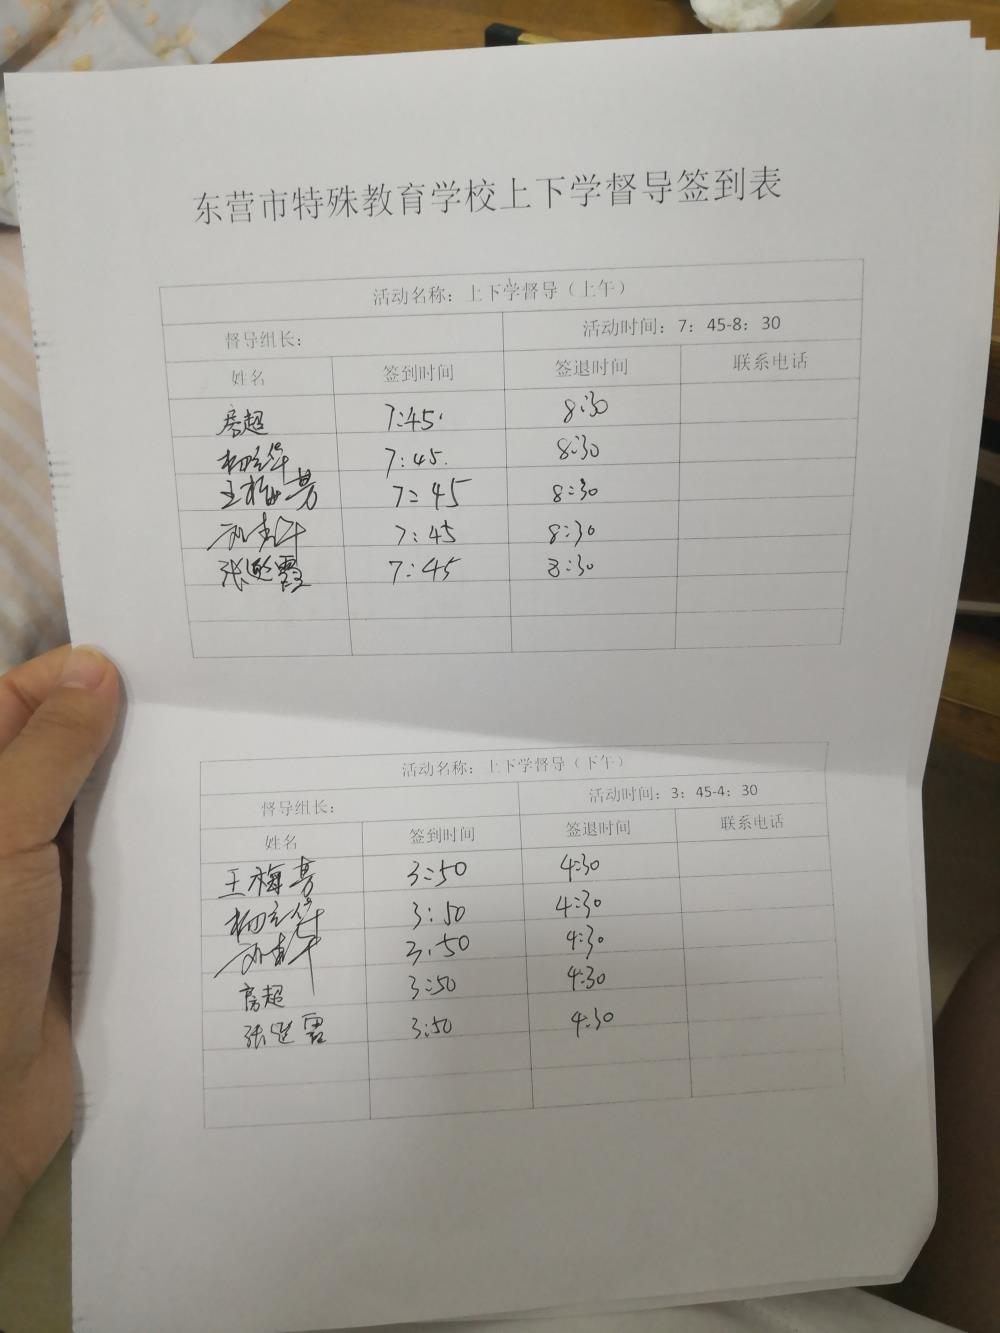 东营市特殊教育学校上下学督导签到表
活动名称：上下学督导（上午）
督导组长： 活动时间：7：45-8：30
姓名 签到时间 签退时间 联系电话
房超 7:45. 8:30
7:45. 8:30
王梅芳 7:45 8:30
7:45 8:30
张 霞 7:45 8:30
活动名称：上下学督导（下午）
督导组长： 活动时间：3：45-4：30
姓名 签到时间 签退时间 联系电话
王梅芳 3:50 4:30
3:50 4:30
3:50 4:30
房超 3:50 4:30
张 霞 3:50 4:30